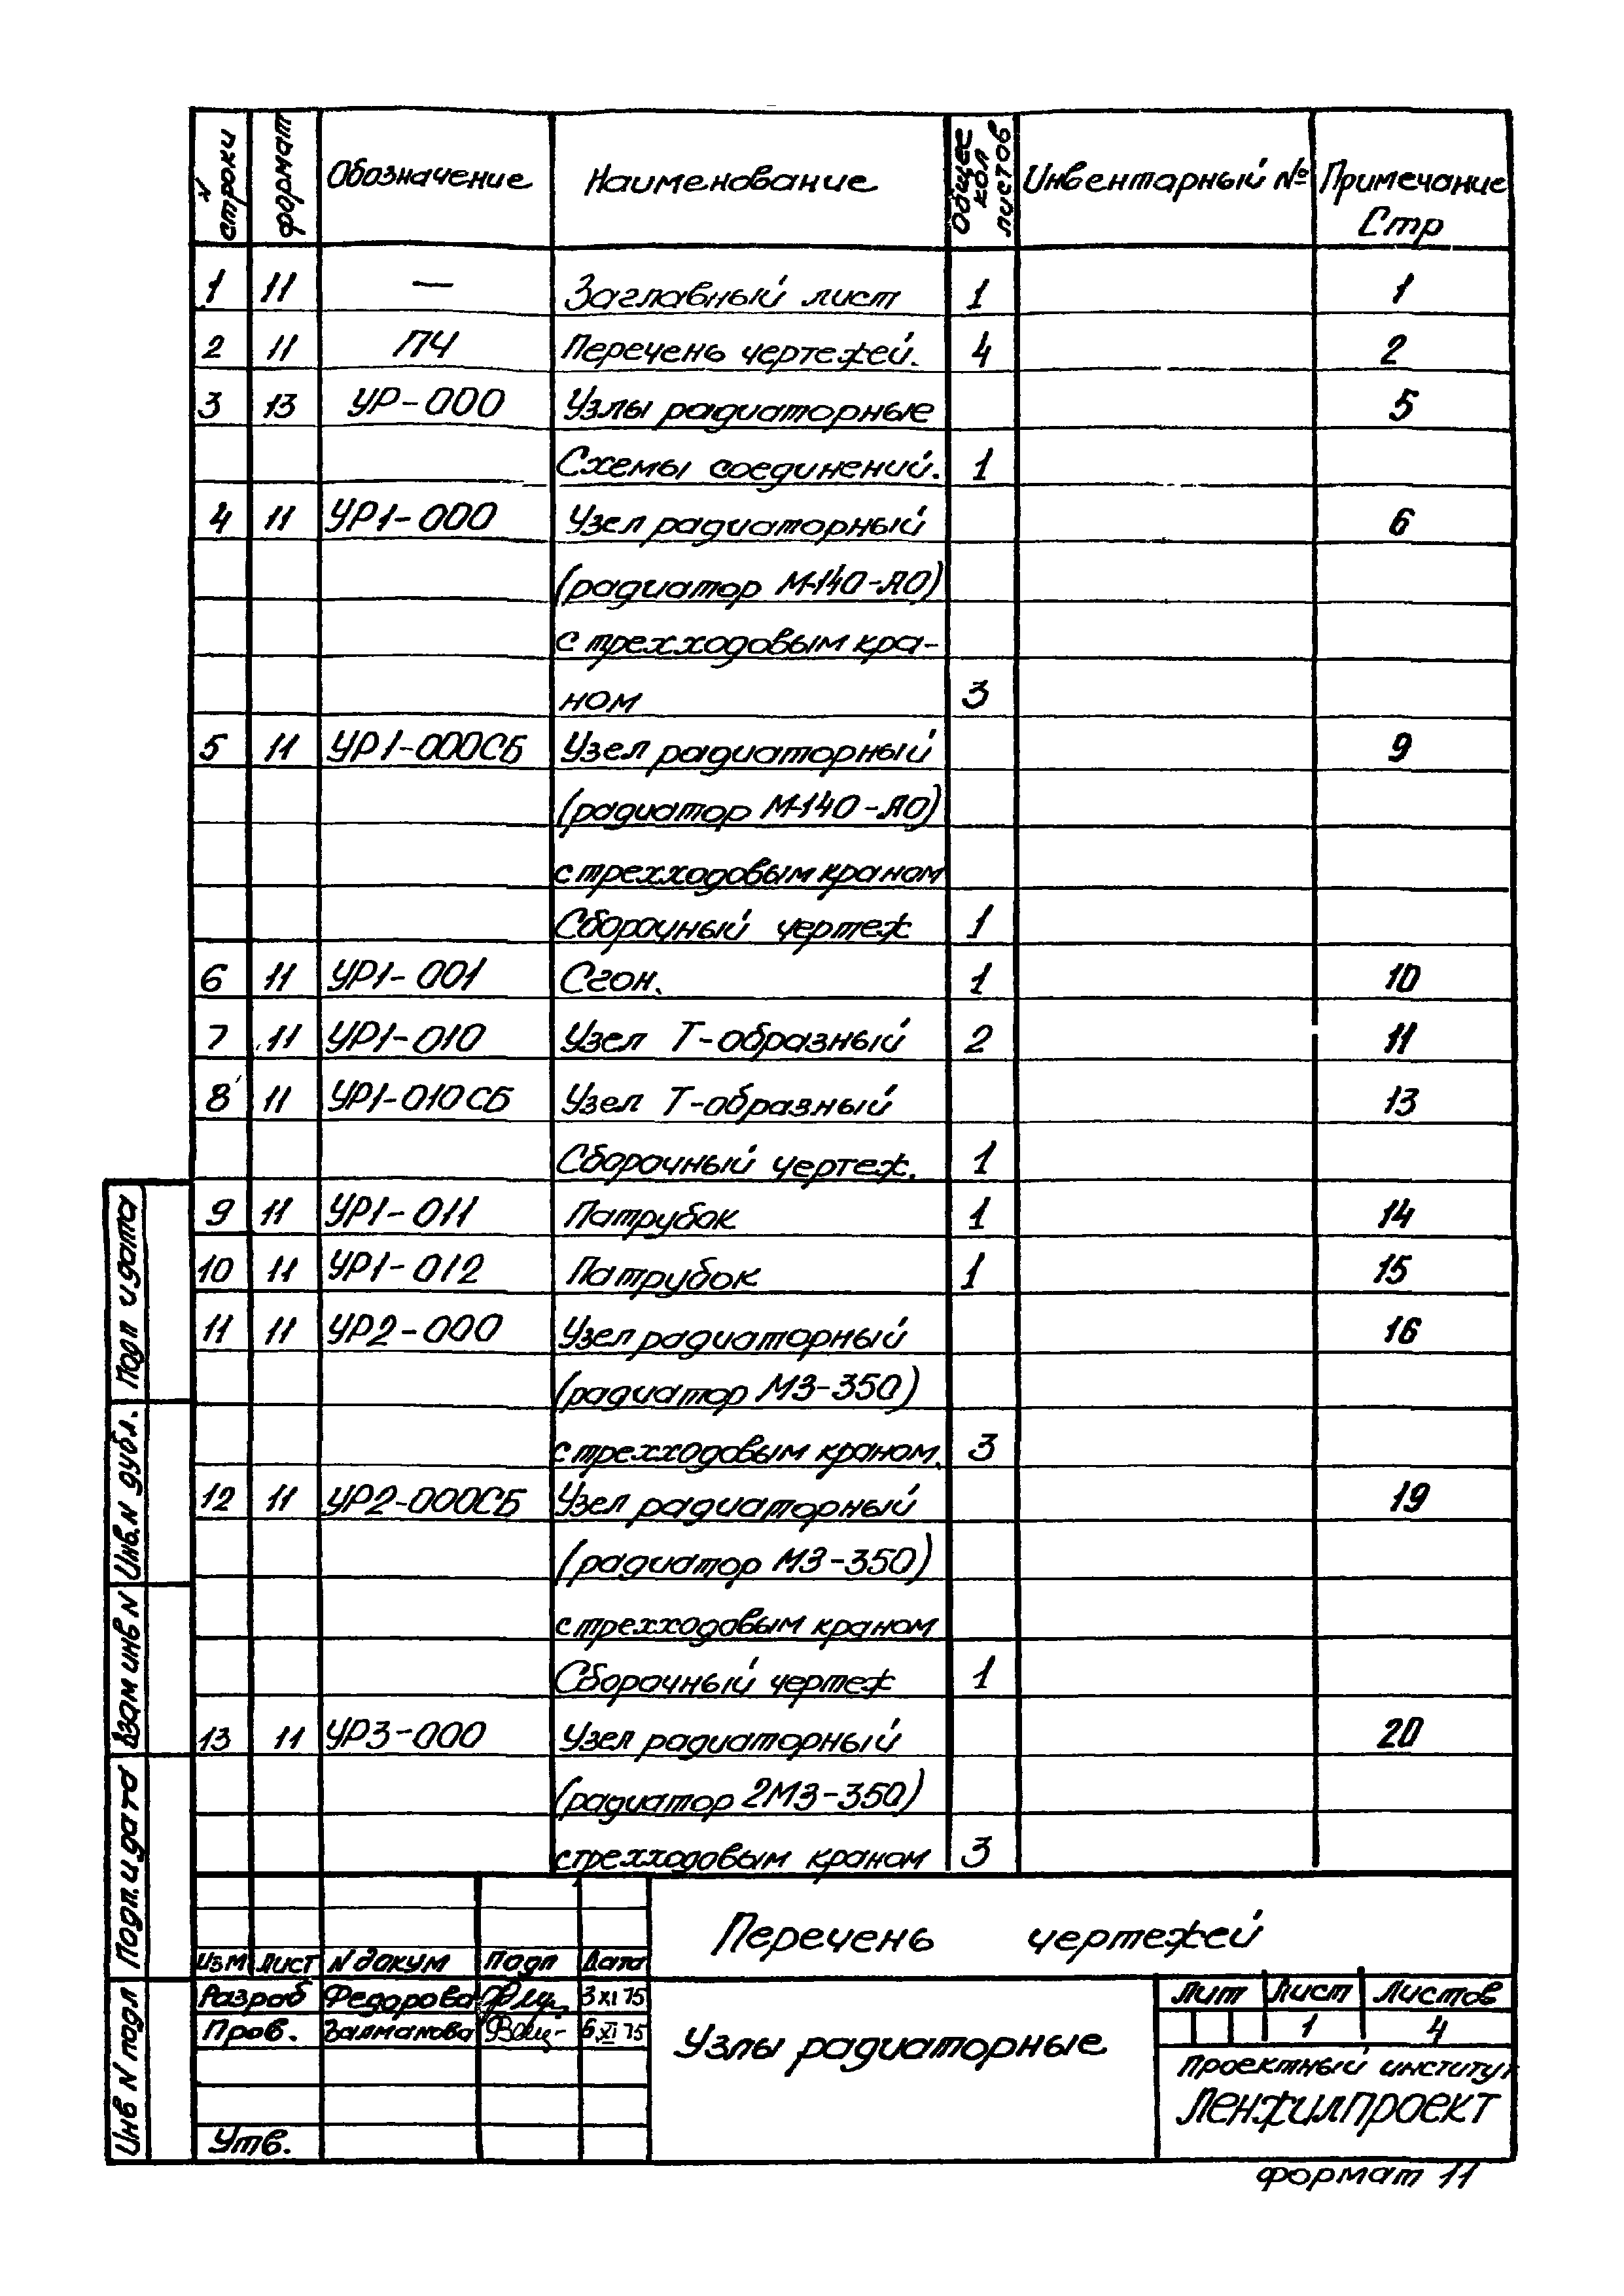 N строки формат Обозначение Наименование Общее кол листов Инвентарный № Примечание Стр
1 11 — Заглавный лист 1 1
2 11 ПЧ Перечень чертежей. 4 2
3 13 УР-000 Узлы радиаторные 5
Схемы соединений. 1
4 11 УР1-000 Узел радиаторный 6
(радиатор М-140-АО)
с трехходовым кра-
ном 3
5 11 УР1-000СБ Узел радиаторный 9
(радиатор М-140-АО)
с трехходовым краном
Сборочный чертеж 1
6 11 УР1-001 Сгон. 1 10
7 11 УР1-010 Узел Т-образный 2 11
8 11 УР1-010СБ Узел Т-образный 13
Сборочный чертеж. 1
9 11 УР1-011 Патрубок 1 14
10 11 УР1-012 Патрубок 1 15
11 11 УР2-000 Узел радиаторный 16
(радиатор МЗ-350)
с трехходовым краном. 3
12 11 УР2-000СБ Узел радиаторный 19
(радиатор МЗ-350)
с трехходовым краном
Сборочный чертеж 1
13 11 УР3-000 Узел радиаторный 20
(радиатор 2МЗ-350)
с трехходовым краном 3
Подп и дата
Инв. N дубл.
Взам инв N
Подп. и дата
Инв N подл
Перечень чертежей
Изм Лист N докум Подп Дата
Разраб Федорова 3 XI 75
Пров. Залманова 6 XI 75
Утв.
Узлы радиаторные
Лит Лист Листов
1 4
Проектный институт
ЛЕНЖИЛПРОЕКТ
формат 11